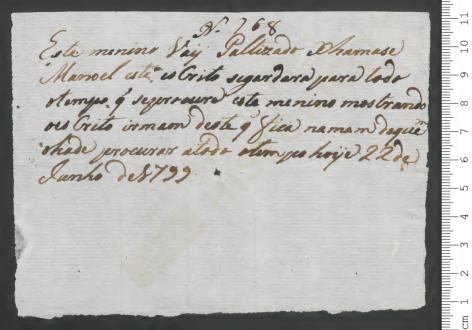 Nº 768
Este menino Vay Pallizado Xhamase
Manoel este escrito segardara para todo
otempo q̃ seprocure este menino mostrando
oes Crito irmam deste q̃ fica namam dequẽ
ohade procurar atodo otempo hoije 22 de
Junho de 1799
cm 1 2 3 4 5 6 7 8 9 10 11